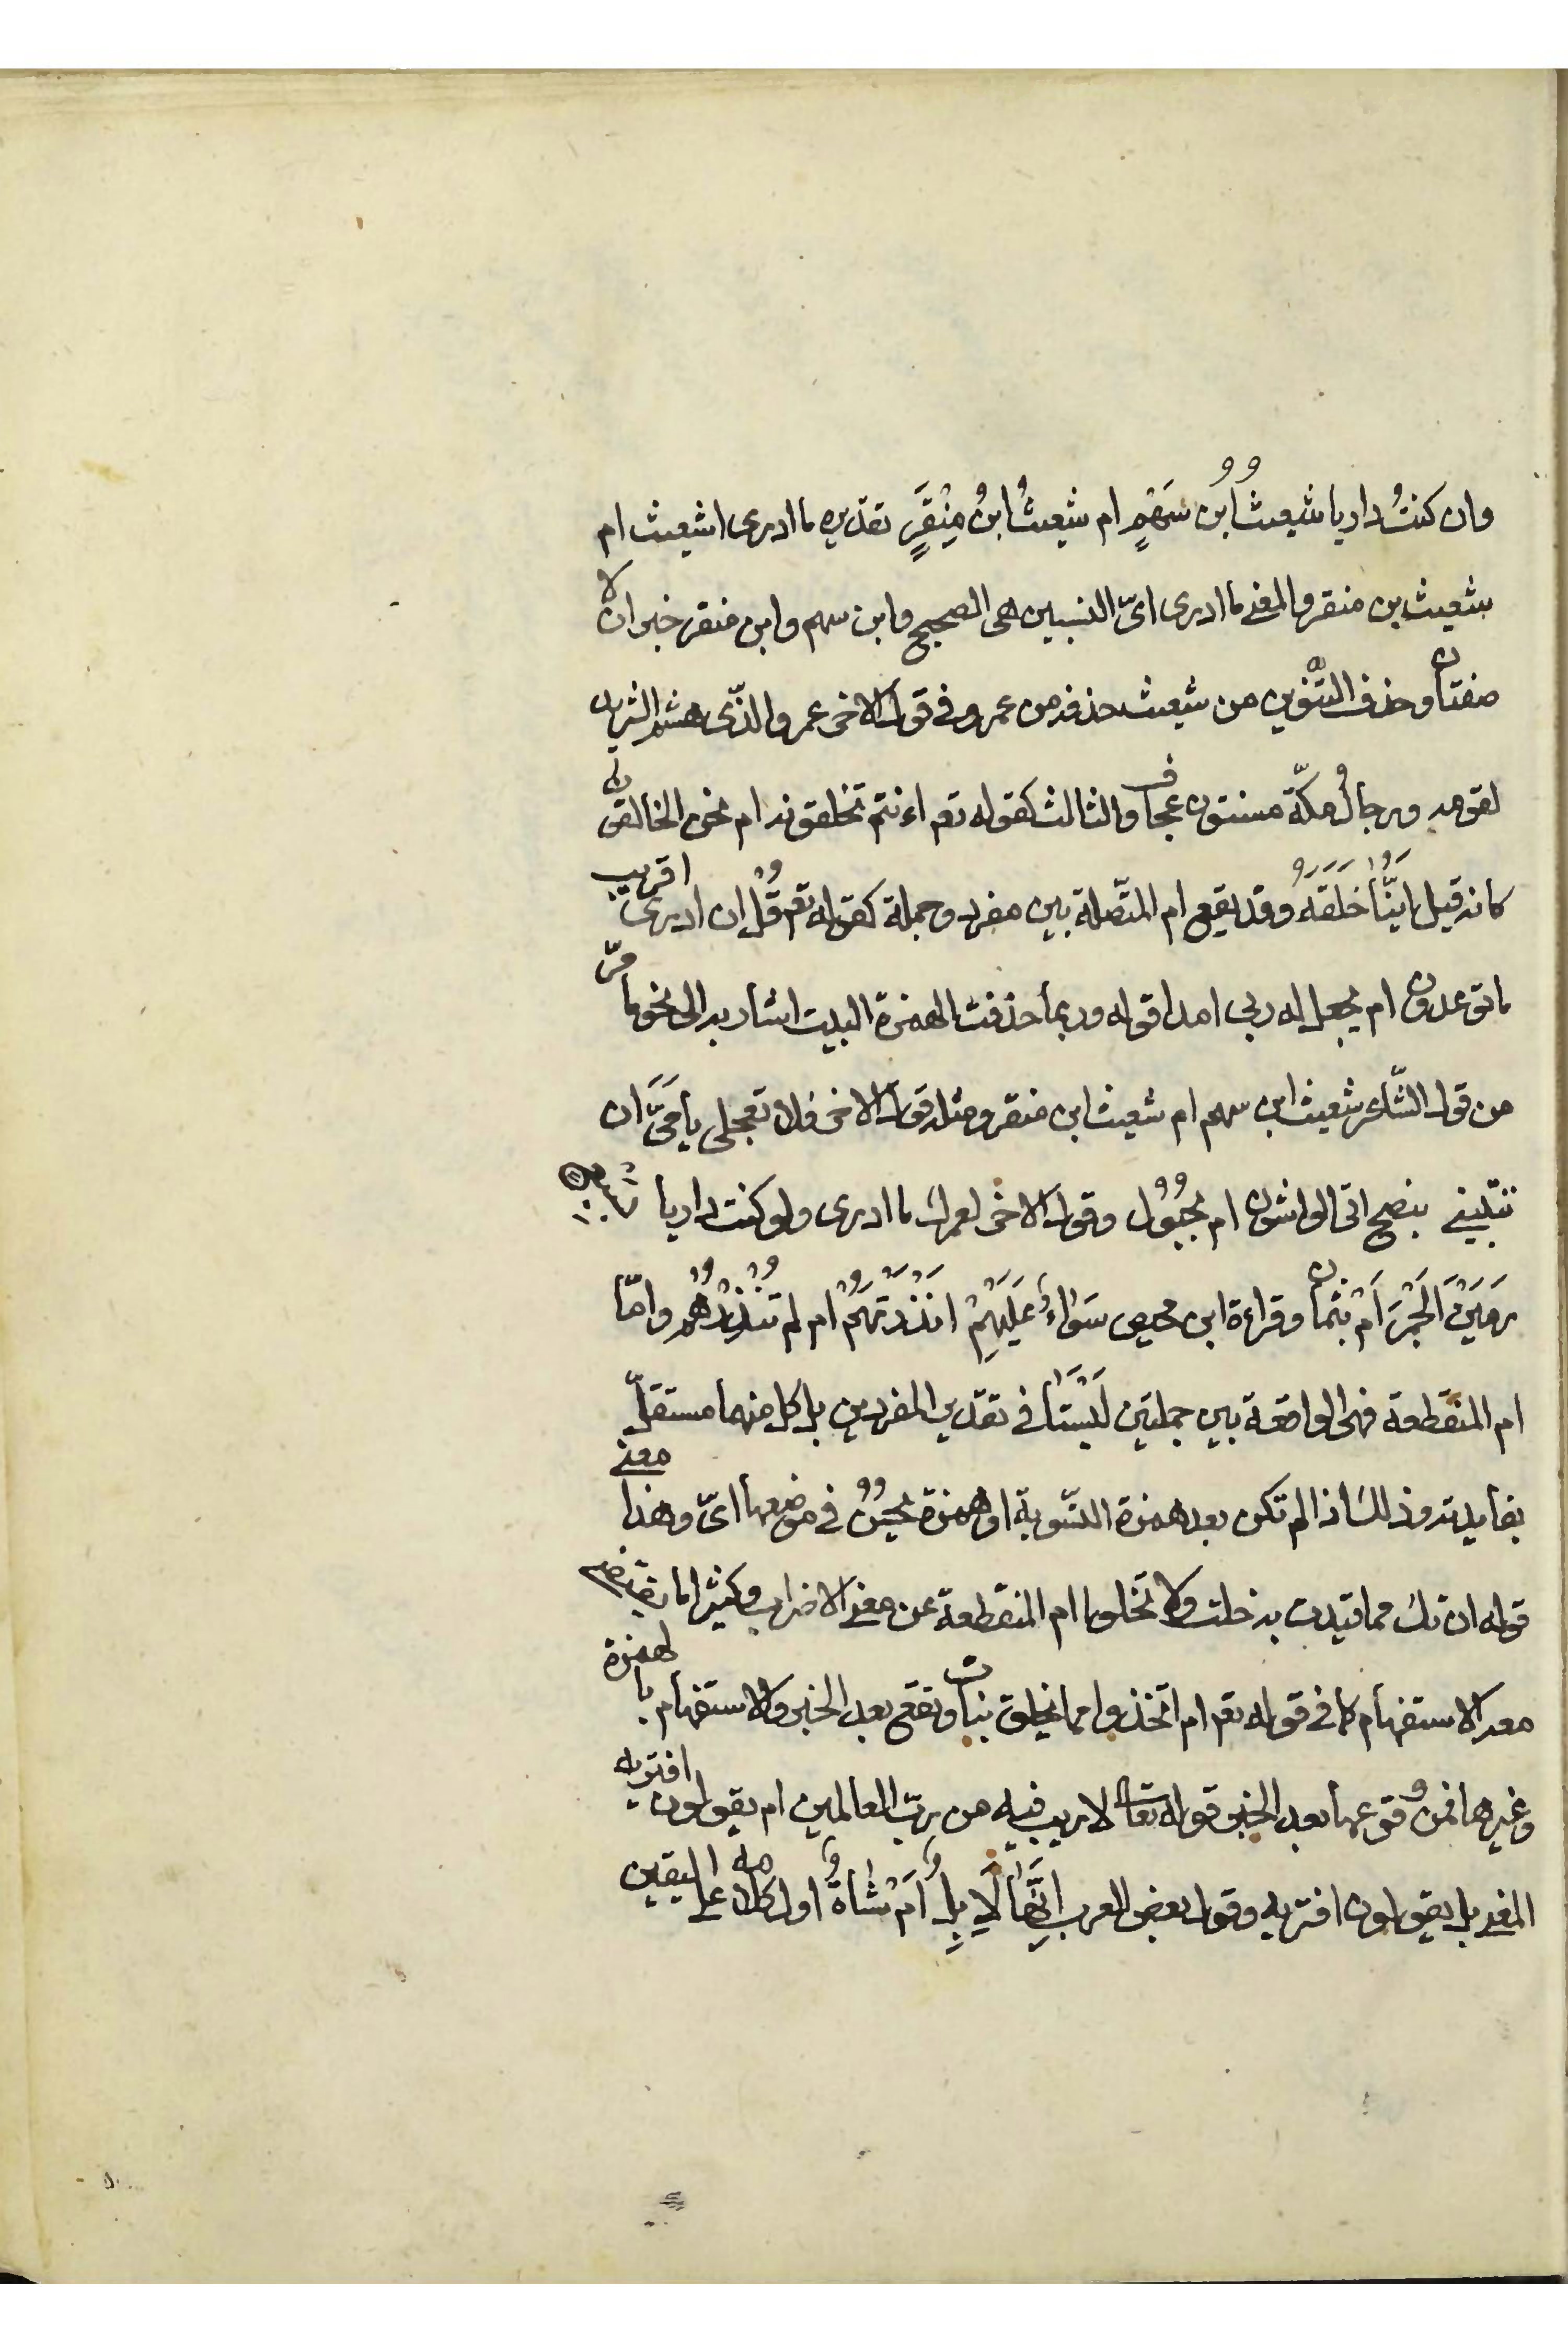 وان كنتُ داريا شعيثُ ابن سَهْمٍ ام شعيثُ ابنُ مِنْقَرٍ تقديره ما ادرى اشعيث ام
شعيث بن منقر والمعنى ما ادرى اىّ النسبين هى الصحيح وابن سهم وابن منقر خبران لا
صفتان وحذف التنّوين من شعيث حذفه من عمرو فى قول الاخر عمرو الذّى هشم الثريد
لقومه ورجالُ مكّة مسنتون عجاف والثالث كقوله تعم اءنتم تخلقونه ام نحن الخالقون
كانه قيل ايّنَا خَلَقَهُ وقد يقع ام المتّصلة بين مفرد وجملة كقوله تعم قُلْ ان ادرى اقريب
ما توعدون ام يجعل له ربى امدا قوله وربما حذفت الهمزة البيت اشار به الى نحو ما مرّ
من قول الشّاعر شعيث ابن سهم ام شعيث ابن منقر ومثله قول الاخر فلا تعجلى يا مَىَّ ان
تتبّينى بنصح اتى الواشون ام بحُبُول وقول الاخر لعمرك ما ادرى ولو كنت داريا
رَمَيْنَ الْجَمْرَ اَمْ بِثَمان وقراءة ابن محيص سَوَاءٌ عَلَيْهِمْ انْذَرْتَهُمْ ام لم تُنْذِرْهُمْ وامّا
ام المنقطعة فهى الواقعة بين جملتين لَيْسَتَا فى تقدير المفردين بل كل منهما مستقلّ
بفايدته وذلك اذا لم تكن بعد همزة التسّوية او همزة يحسُنُ فى موضعها اىّ وهذا معنى
قوله ان تك مما قيدت به خلت ولا تخلوا ام المنقطعة عن معنى الاضراب وكثيرا ما يقتضى
معه الاستفهام كما فى قوله تعم ام اتخذ مما يخلق بنات وتقع بعد الخبر والاستفهام بالهمزة
وغيرها فمن وقوعها بعد الخبر قوله تعالى لا ريب فيه من ربّ العالمين ام يقولون افتريه
المعنى بل يقولون افتريه وقول بعض العرب اِنَّهَا لَاِبِلٌ اَمْ شَاةٌ اول كلامه على اليقين